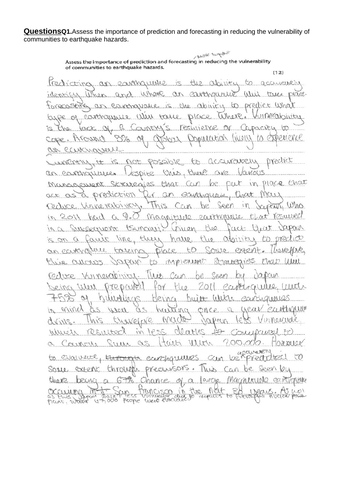 QuestionsQ1.Assess the importance of prediction and forecasting in reducing the vulnerability of
communities to earthquake hazards.
Assess the importance of prediction and forecasting in reducing the vulnerability
of communities to earthquake hazards.
(12)
Predicting an earthquake is the ability to accurately
identify when and where an earthquake will take place
forecasting an earthquake is the ability to predict what
type of earthquake will take place where. Vulnerability
is the lack of a Country's resilience or capacity to
cope. Around % of global population living to experience
an earthquake
Currently, it is not possible to accurately predict
an earthquake. Despite this, there are various
Management strategies that can be put in place that
act as a prediction for an earthquake, that may
reduce vulnerability. This can be seen in Japan, who
in 2011 had a 9.0 magnitude earthquake that resulted
in a subsequent tsunami. Given the fact that Japan
is on a fault line, they have the ability to predict
an earthquake taking place to some extent. therefore,
this allows Japan to implement strategies that will
reduce vulnerability. This can be seen by Japan
being well prepared for the 2011 earthquake, with
75% of buildings being built with earthquakes
in mind as well as having once a year earthquake
drills. This therefore made Japan less vulnerable
which resulted in less deaths compared to
a Country such as Haiti with 200,000. However
to evaluate, earthquakes can be accurately predicted to
some extent through precursors. This can be seen by
there being a % chance of a large magnitude earthquake
occuring in San Francisco in the next years. As well
as this, Japan were less vulnerable due to
where 47,000 people were evacuated